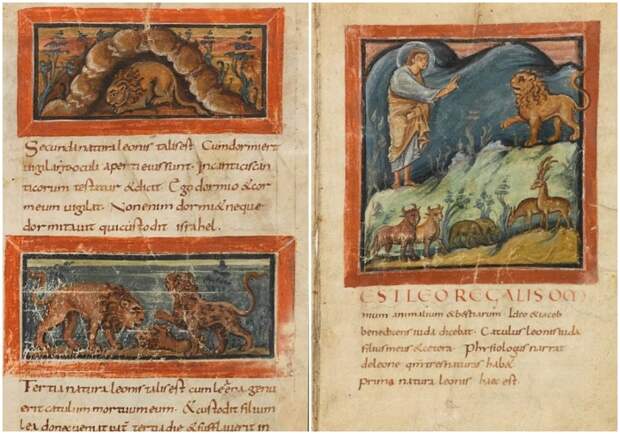 Secunda natura leonis talis est. Cum dormierit
vigilant oculi aperti eius sunt. In canticis can
ticorum testatur & dicit. Ego dormio & cor
meum vigilat. Non enim dormi & neque
dormitavit qui custodit israhel.
Tertia natura leonis talis est cum leena genu
erit catulum mortuum eum. & custodit filium
lea donec veniat pat tertia die & sufflaverit in
EST LEO REGALIS OM
nium animalium & bestiarum. Ideo & iacob
benedicens iuda dicebat. Catulus leonis iuda
filius meus & cetera. Physiologus narrat
de leone qm tres naturas hab&
prima natura leonis haec est.